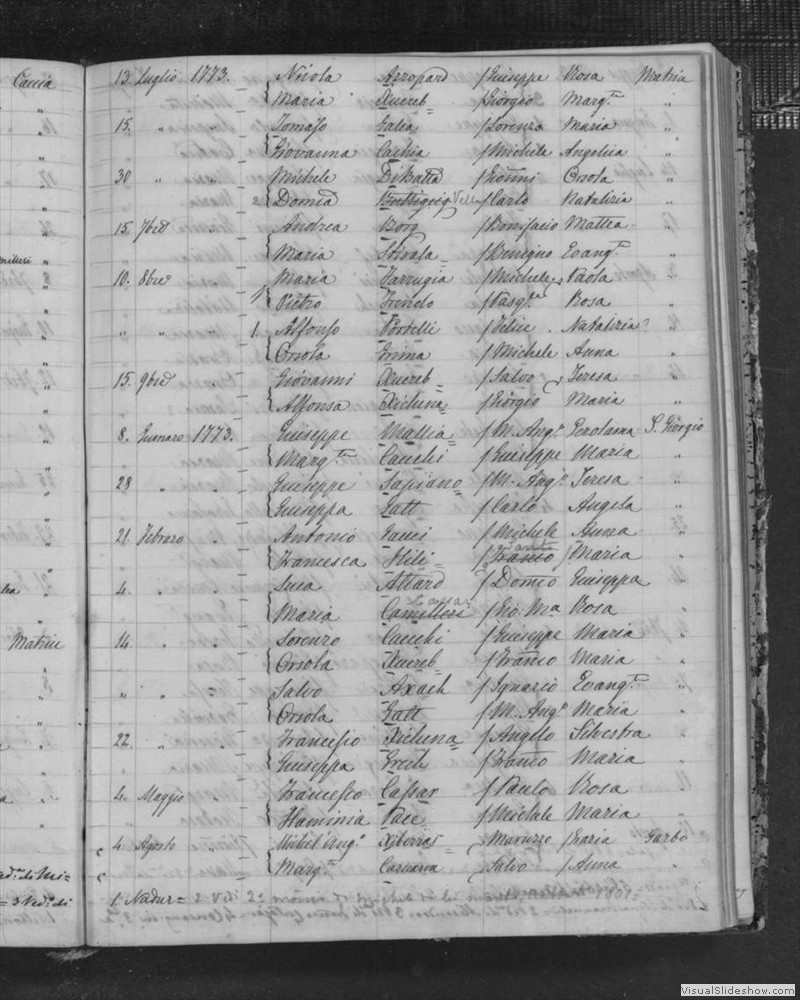 Caccia 13. Luglio 1773. Nicola Azzopard f Giuseppe Rosa Matrice
Maria Xuereb f Giorgio Marg.ta "
15. " " Tomaso Galea f Lorenzo Maria "
Giovanna Cachia f Michele Angelica "
30 " " Michele DeBatta f Gionni Orsola "
2 Domca Buttigieg Vella f Carlo Natalizia "
15. 7bre " Andrea Borg f Bonifacio Mattea "
Maria f Benigno Evang.ta "
10. 8bre " Maria Farrugia f Michele Paola "
Pietro f Pasq.le Rosa "
" " " 1. Alfonso Portelli f Felice Natalizia? "
Orsola Grima f Michele Anna "
15. 9bre " Giovanni Xuereb f Salvo Teresa "
Alfonsa Xicluna f Giorgio Maria "
8. Gennaro 1773. Giuseppe Mallia f M. Ang.o Gerolama S. Giorgio
Marg.ta Cauchi f Giuseppe Maria "
28 " " Giuseppe Sapiano f M. Ang.o Teresa "
Giuseppa Gatt f Carlo Angela "
21. Febraro " Antonio Gauci f Michele Anna "
Francesca Hili f Franco f Maria "
4. " " Luca Attard f Domco Giuseppa "
Maria Camilleri f Gio. Ma Rosa "
Matrice 14. " " Lorenzo Cauchi f Giuseppe Maria "
Orsola Xuereb f Franco Maria "
" " " Salvo Axach f Ignazio Evang.ta "
Orsola Gatt f M. Ang.o Maria "
22. " " Francesco Xicluna f Angelo Silvestra "
Giuseppa Grech f Franco Maria "
4. Maggio " Francesco Caspar f Paulo Rosa "
Flaminia Pace f Michele Maria "
4. Agosto " Michel'Ang.o Xiberras Maruzzo f Garbo
Marg.ta Caruana Salvo f Anna "
1. Nadur =
VisualSlideshow.com